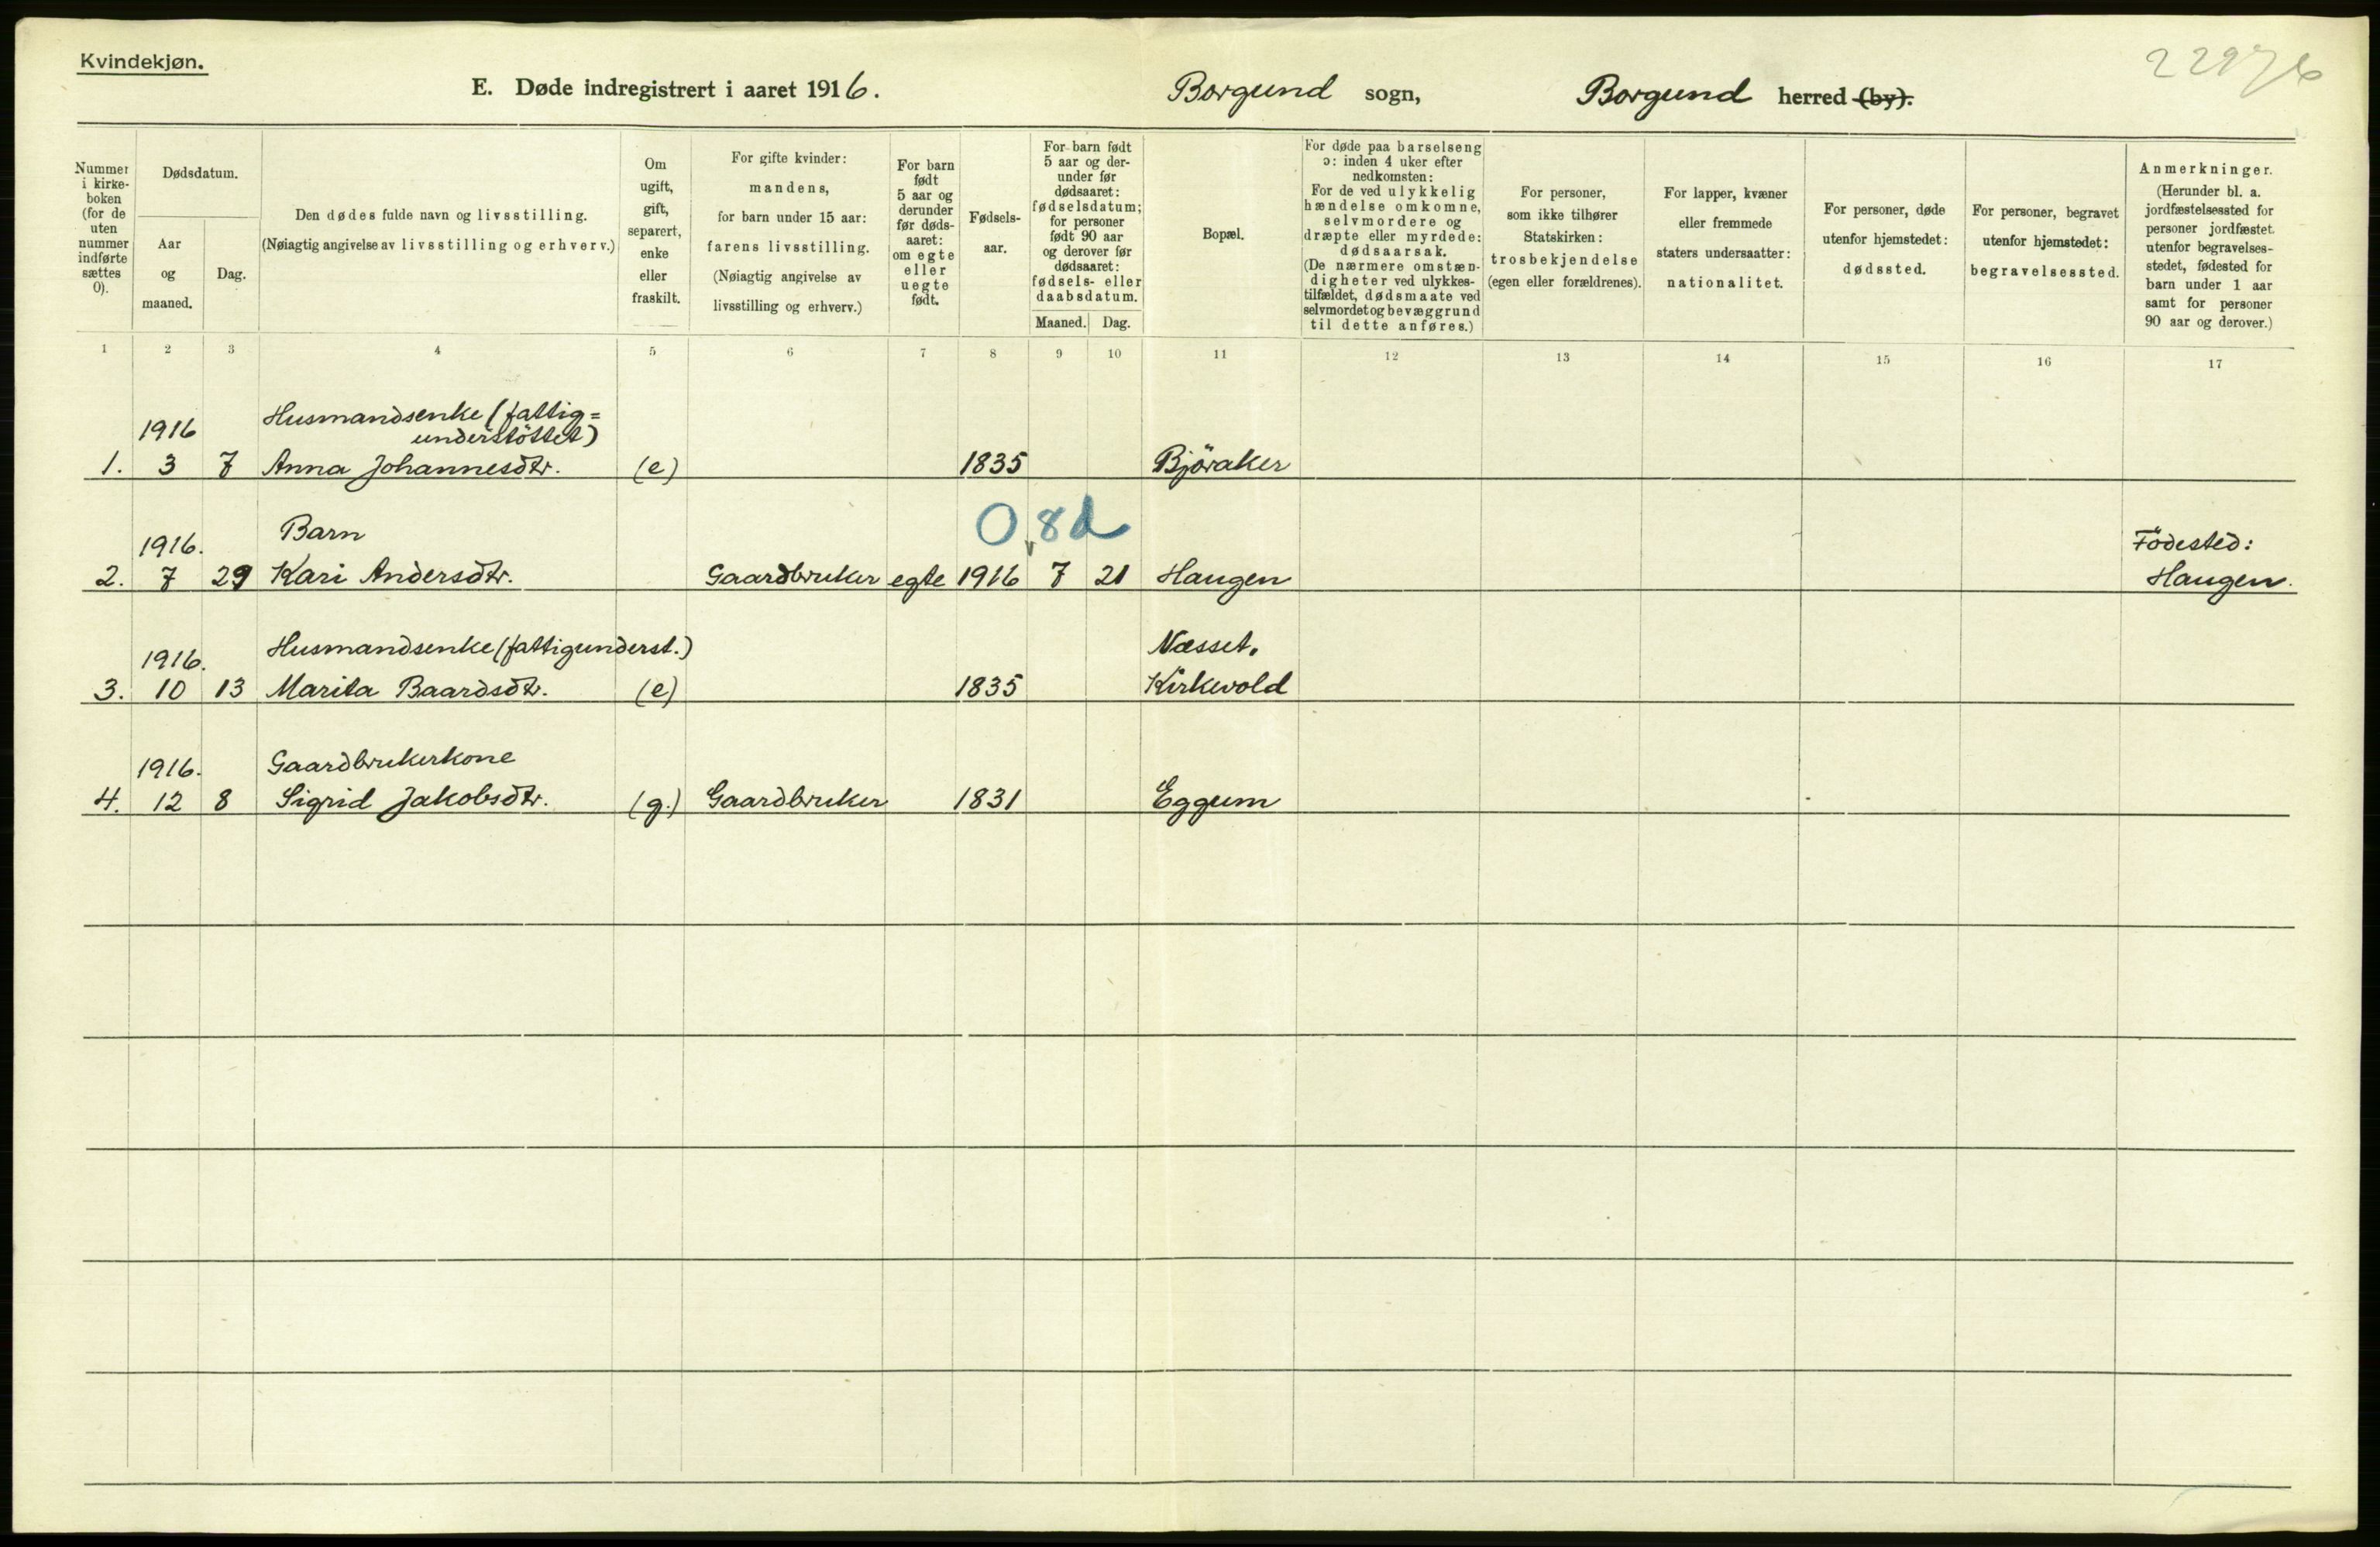 Kvindekjøn.
E. Døde indregistrert i aaret 1916. Borgund sogn, Borgund herred (by).
22976
Nummer
i kirke-
boken
(for de
uten
nummer
indførte
sættes
0).
Dødsdatum.
Aar
og
maaned.
Dag.
Den dødes fulde navn og livsstilling.
(Nøiagtig angivelse av livsstilling og erhverv.)
Om
ugift,
gift,
separert,
enke
eller
fraskilt.
For gifte kvinder:
mandens,
for barn under 15 aar:
farens livsstilling.
(Nøiagtig angivelse av
livsstilling og erhverv.)
For barn
født
5 aar og
derunder
før døds-
aaret:
om egte
eller
uegte
født.
Fødsels-
aar.
For barn født
5 aar og der-
under før
dødsaaret:
fødselsdatum;
for personer
født 90 aar
og derover før
dødsaaret:
fødsels- eller
daabsdatum.
Maaned. Dag.
Bopæl.
For døde paa barselseng
ɔ: inden 4 uker efter
nedkomsten:
For de ved ulykkelig
hændelse omkomne,
selvmordere og
dræpte eller myrdede:
dødsaarsak.
(De nærmere omstæn-
digheter ved ulykkes-
tilfældet, dødsmaate ved
selvmordet og bevæggrund
til dette anføres.)
For personer,
som ikke tilhører
Statskirken:
trosbekjendelse
(egen eller forældrenes).
For lapper, kvæner
eller fremmede
staters undersaatter:
nationalitet.
For personer, døde
utenfor hjemstedet:
dødssted.
For personer, begravet
utenfor hjemstedet:
begravelsessted.
Anmerkninger.
(Herunder bl. a.
jordfæstelsessted for
personer jordfæstet
utenfor begravelses-
stedet, fødested for
barn under 1 aar
samt for personer
90 aar og derover.)
1 2 3 4 5 6 7 8 9 10 11 12 13 14 15 16 17
Husmandsenke (fattig=
1916 understöttet)
1. 3 7 Anna Johannesdtr. (e) 1835 Björaker
0,8d
1916. Barn Födested:
2. 7 29 Kari Andersdtr. Gaardbruker egte 1916 7 21 Haugen Haugen.
1916. Husmandsenke (fattigunderst.) Næsset.
3. 10 13 Marita Baardsdtr. (e) 1835 Kirkevold
1916. Gaardbrukerkone
4. 12 8 Sigrid Jakobsdtr. (g.) Gaardbruker 1831 Eggum